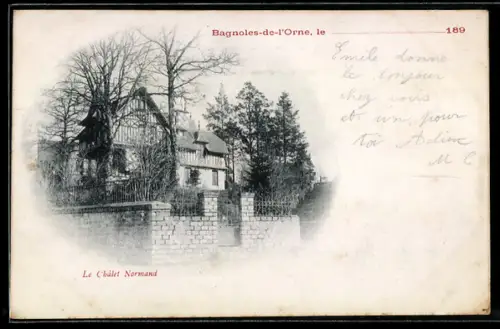 Bagnoles-de-l'Orne, le 189
Emile donne
le bonjour
chez vous
et un pour
toi Adieu
M C
Le Châlet Normand